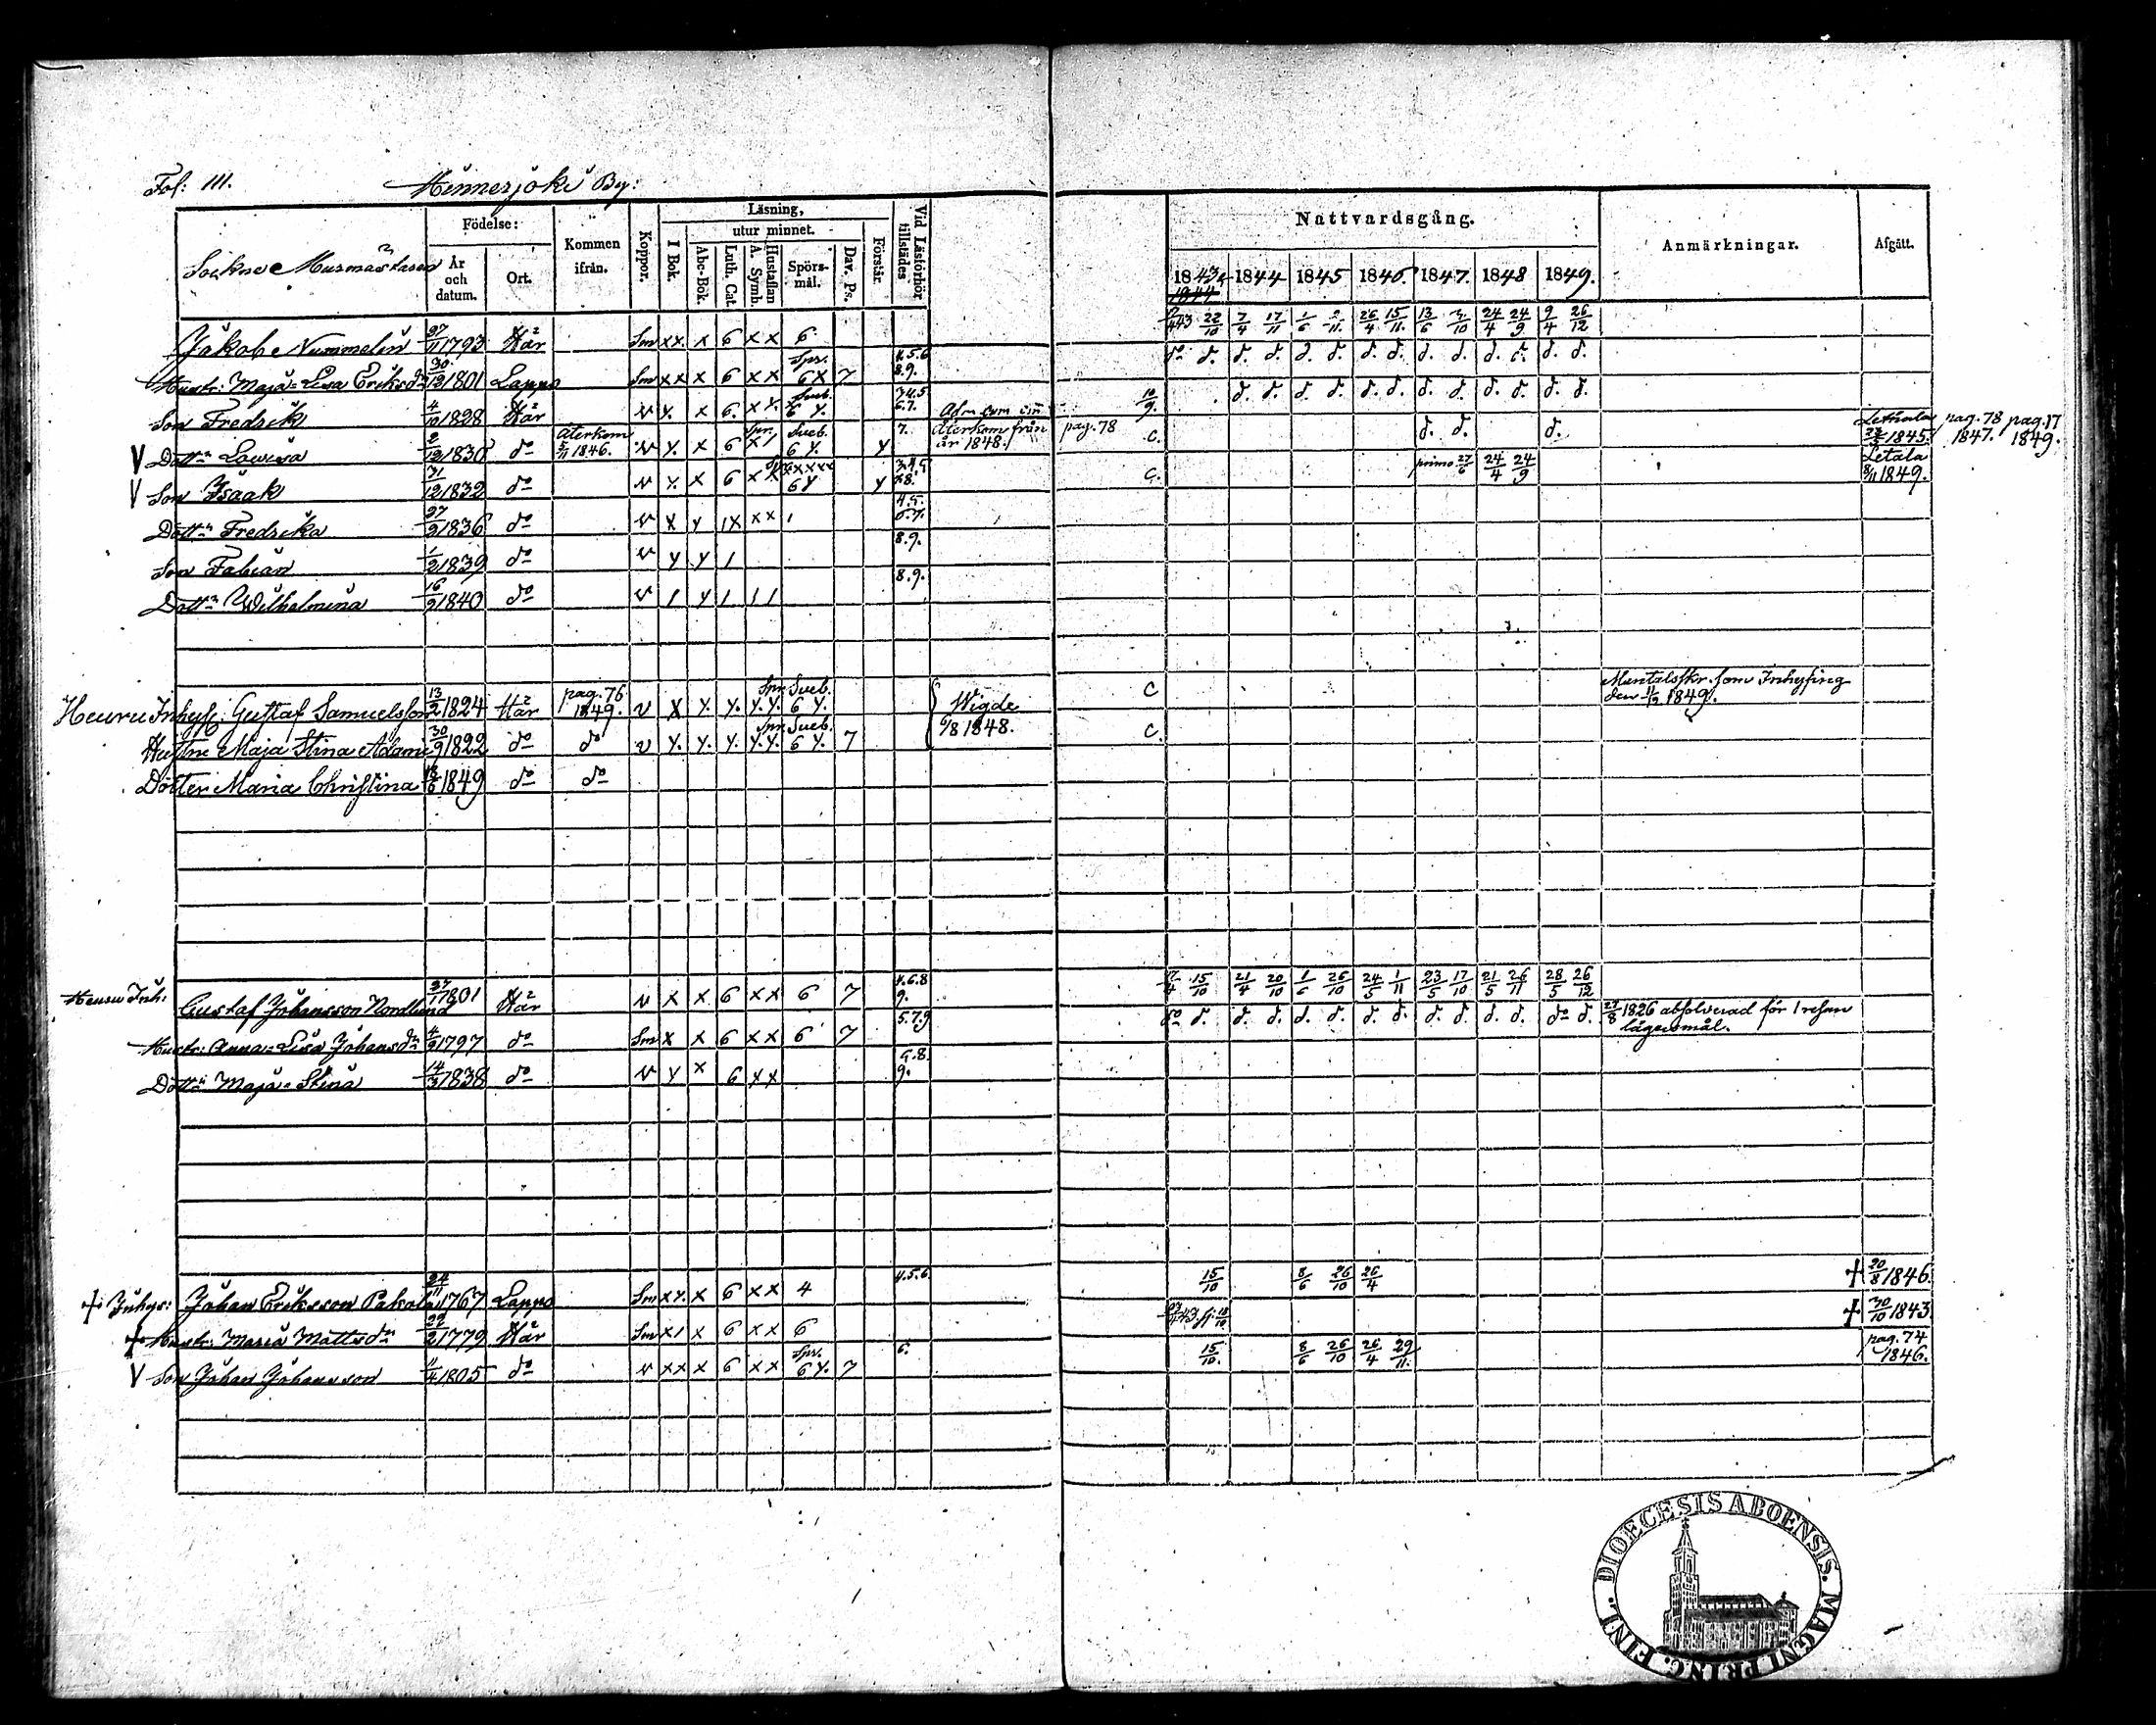 Fol: 111. Hinnerjoki By:
Födelse: Kommen ifrån. Koppor. Läsning, Vid Läsförhör tillstädes Nattvardsgång. Anmärkningar. Afgått.
År och datum. Ort. I Bok. utur minnet. Förstår.
Abc-Bok. Luth. Cat. Hustaflan A. Symb. Spörs-mål. Dav. Ps.
1843 1844 1844 1845 1846 1847. 1848 1849.
Sockne
Jakob Nummelin 27/11 1793 Här Sm xx. x 6 x x 6 22/10 7/4 17/11 1/6 2/11 26/4 15/11 13/6 3/10 24/4 24/9 9/4 26/12
Hustr: Maja-Lisa Eriksdr 30/12 1801 Lappo Sm xx x 6 xx Spr. 6x 7 4.5.6 8.9. do d. d. d. d. d. d. d. d. d. d. d. d. d.
Son Fredrik 4/10 1828 Här v y. x 6. x y. Sveb. 6 y. 3.4.5 6.7. d. d. d. d. d. d. d. d. d. d. d. d.
V Dottr Lovisa 2/12 1830 do Återkom 5/11 1846. v y. x 6 x 1 Spr. Sveb. 6 y. y 7. Återkom från år 1848. pag. 78 C. d. d. d. Letala 1845. pag. 78 1847. pag. 17 1849.
V Son Isaak 31/12 1832 do v y. x 6 x x 6 y y C. primo 27/6 24/4 24/9 Letala 8/11 1849.
Dottr Fredrika 27/2 1836 do v x y 1x xx 1 4.5. 6.7.
Son Fabian 1/2 1839 do v y y 1 8.9.
Dottr Wilhelmina 16/9 1840 do v 1 y 1 1 1 8.9.
Inhys: Gustaf Samuelsson 13/2 1824 Här pag. 76 1849. v x y. y. y.y. Spr. Sveb. 6 y. Wigde 6/8 1848. C Mantalsskr. som Inhysing den 11/12 1849.
Hustru Maja Stina Adami 30/9 1822 do do v y. y. y. y.y. Spr. Sveb. 6 y. 7 C.
Dotter Maria Christina 13/6 1849 do do
Inh: Gustaf Johansson Nordlund 1801 Här v x x 6 x x 6 7 4.6.8 9. 15/10 21/4 20/10 1/6 26/10 24/5 1/11 23/5 17/10 21/5 26/11 28/5 26/12
Hustr: Anna-Lisa Johansdr 4/9 1797 do Sm x x 6 x x 6 7 5.7.9 do d. d. d. d. d. d. d. d. d. d. d. do d. 27/8 1826 absolverad för 1 resan lägersmål.
Dottr Maja-Stina 14/3 1838 do v y x 6 y x 5.8. 9.
+ Inhys: Johan Eriksson Pakola 24/11 1767 Lappo Sm xy. x 6 x x 4 4.5.6. 15/10 8/6 26/10 26/4 + 20/8 1846.
+ Hustr: Maria Mattsdr 22/2 1779 Här Sm x 1 x 6 x x 6 + 30/10 1843
V Son Johan Johansson 11/4 1805 do v xx x 6 x x Spr. 6 y. 7 6. 15/10. 8/6 26/10 26/4 29/11. pag. 74 1846.
DIOECESIS ABOENSIS. MAGNI PRINC. FINL.